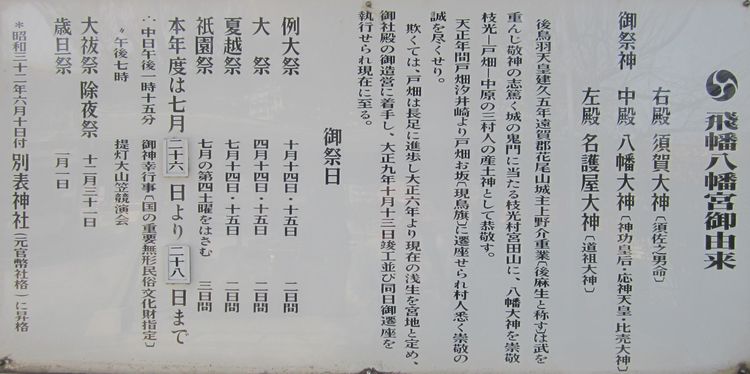 飛幡八幡宮御由来
御祭神
右殿 須賀大神〔須佐之男命〕
中殿 八幡大神〔神功皇后・応神天皇・比売大神〕
左殿 名護屋大神〔道祖大神〕
後鳥羽天皇建久五年遠賀郡花尾山城主上野介重業〔後麻生と称す〕は武を
重んじ敬神の志篤く城の鬼門に当たる枝光村宮田山に、八幡大神を崇敬
枝光―戸畑―中原の三村人の産土神として恭敬す。
天正年間戸畑汐井崎より戸畑お坂〔現鳥旗〕に遷座せられ村人悉く崇敬の
誠を尽くせり。
欺くては、戸畑は長足に進歩し大正六年より現在の浅生を宮地と定め、
御社殿の御造営に着手し、大正九年十月十三日竣工並び同日御遷座を
執行せられ現在に至る。
御祭日
例大祭 十月十四日・十五日 二日間
大祭 四月十四日・十五日 二日間
夏越祭 七月十四日・十五日 二日間
祇園祭 七月の第四土曜をはさむ 三日間
本年度は七月二十六日より二十八日まで
∴中日午後一時十五分 御神幸行事〔国の重要無形民俗文化財指定〕
〃午後七時 提灯大山笠競演会
大祓祭 除夜祭 十二月三十一日
歳旦祭 一月一日
*昭和三十二年六月十日付 別表神社(元官幣社格)に昇格